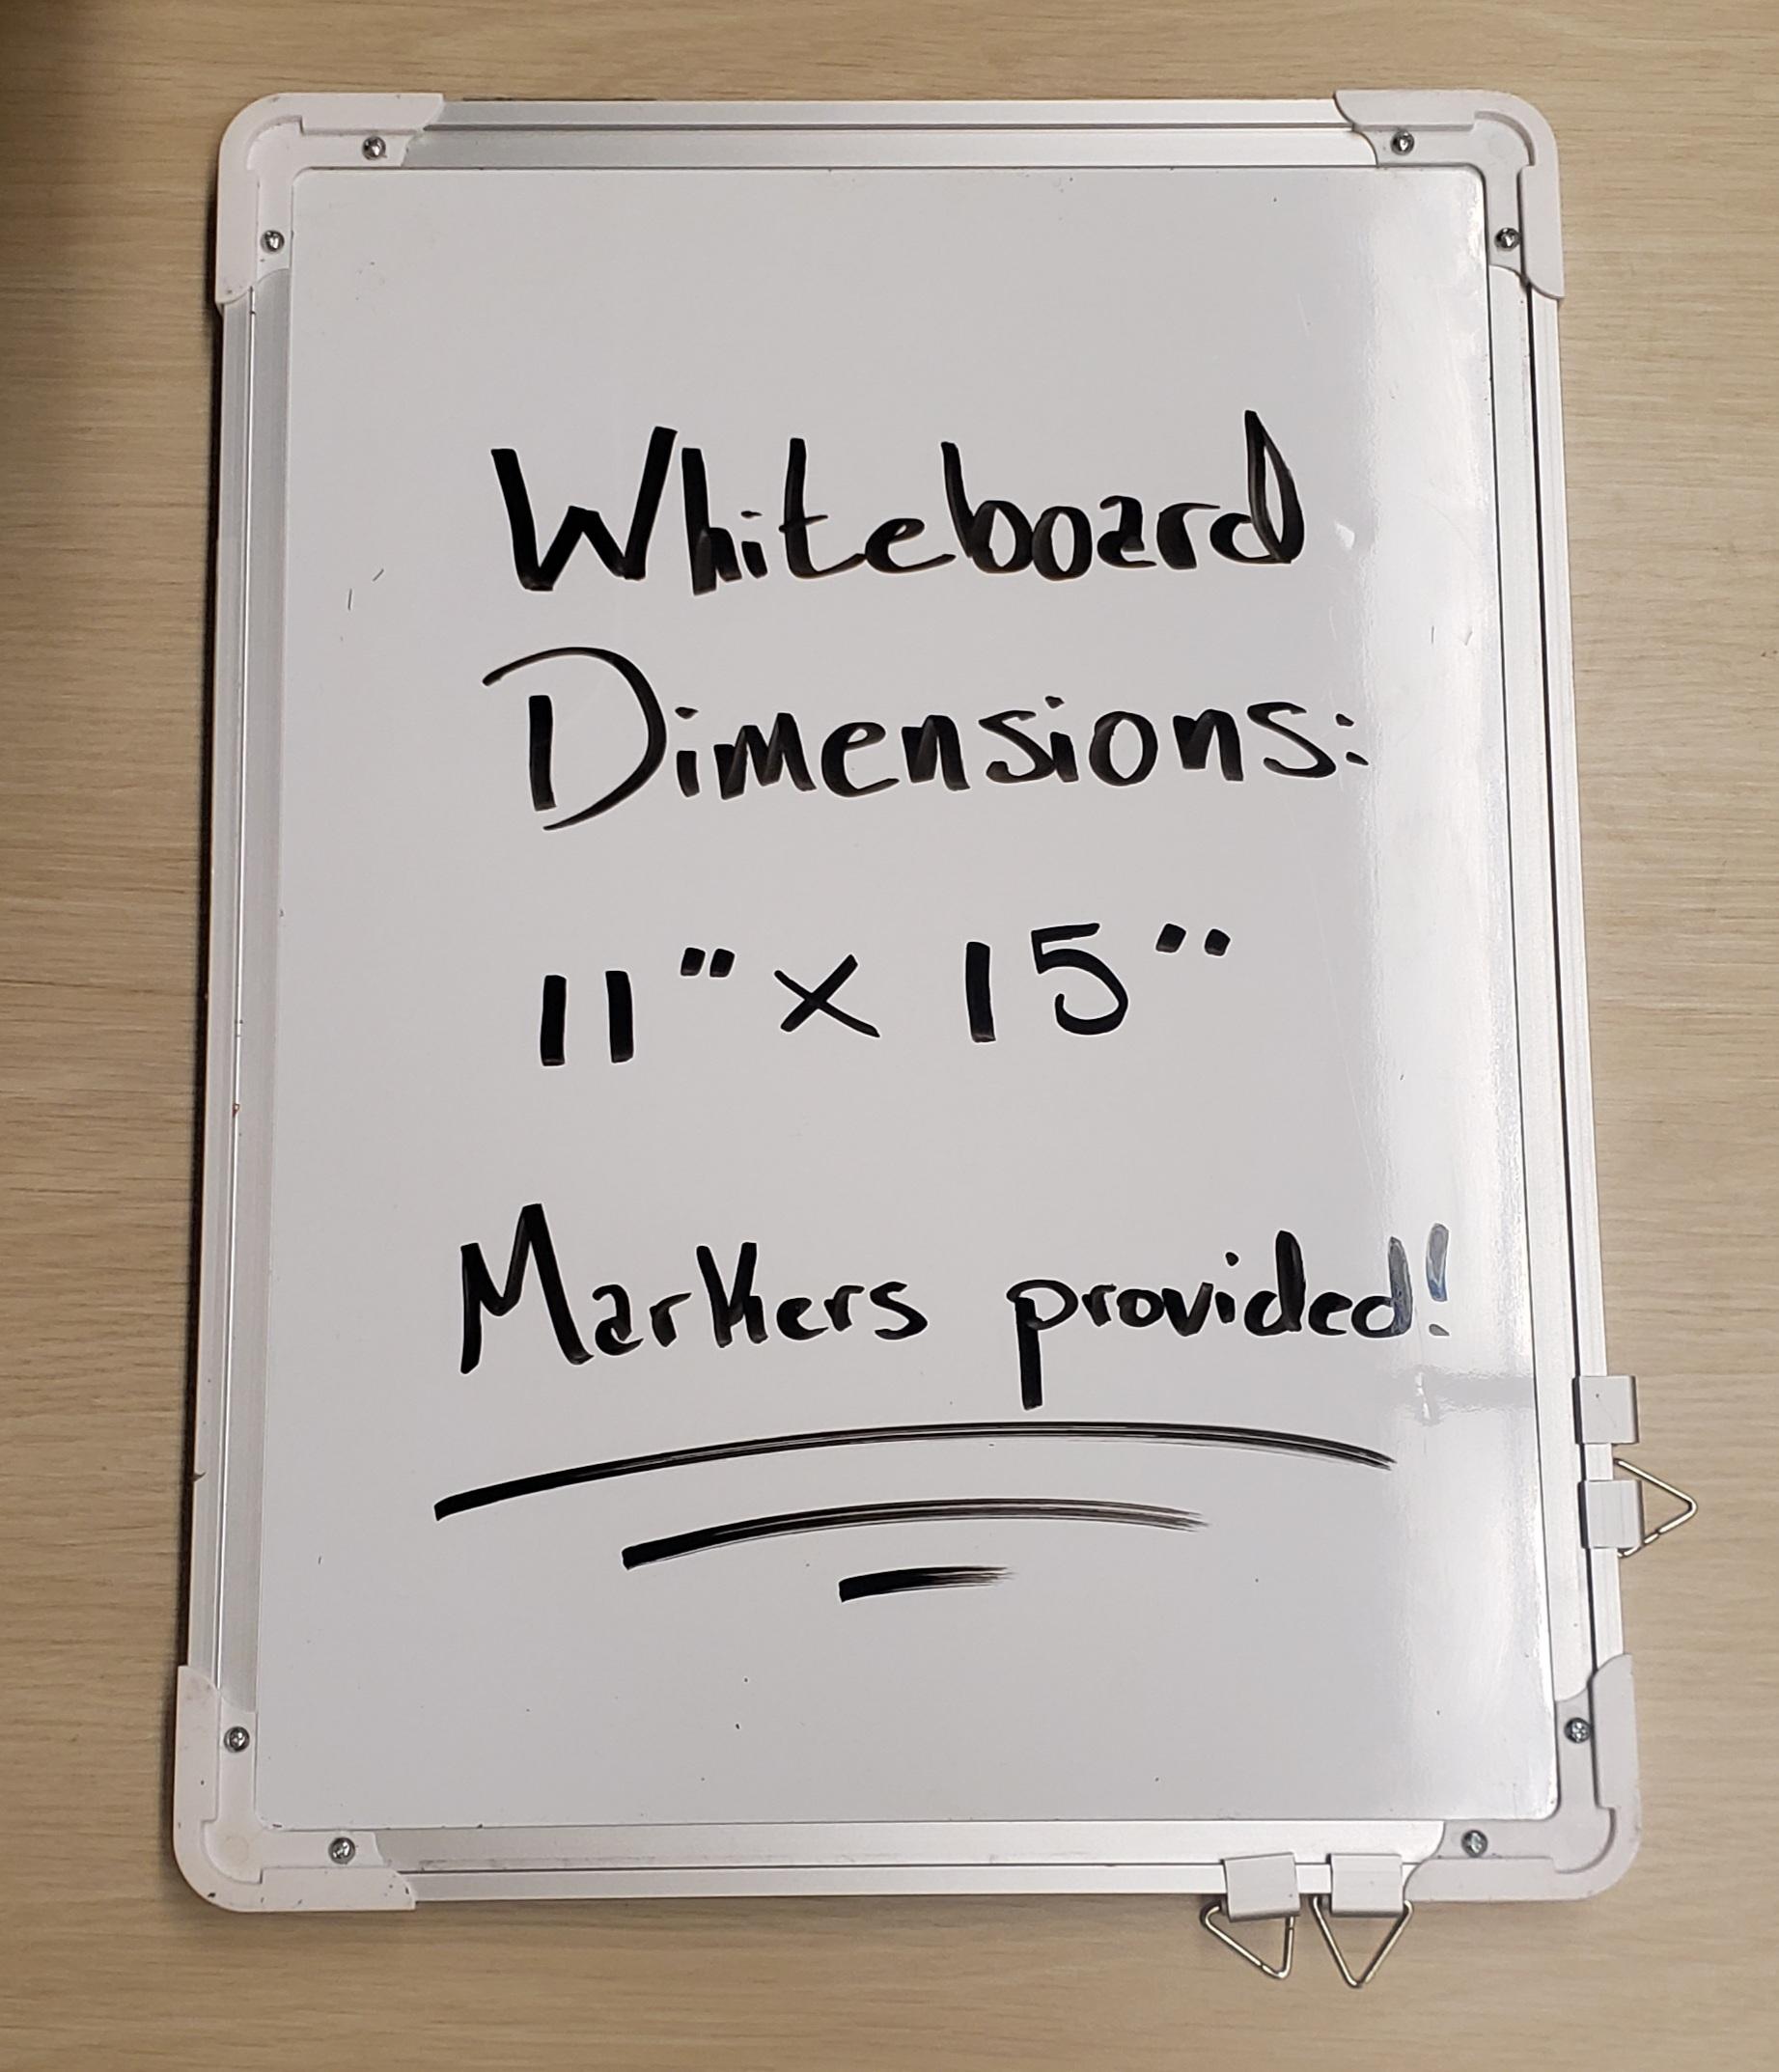 Whiteboard
Dimensions:
11" x 15"
Markers provided!